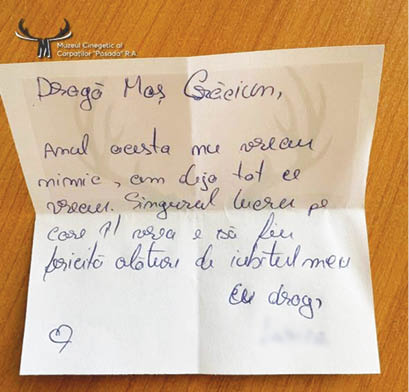 Muzeul Cinegetic al
Carpaților "Posada" R.A.
Dragă Moș Crăciun,
Anul acesta nu vreau
nimic, am deja tot ce
vreau. Singurul lucru pe
care îl vrea e să fiu
fericită alături de iubitul meu
Cu drag,